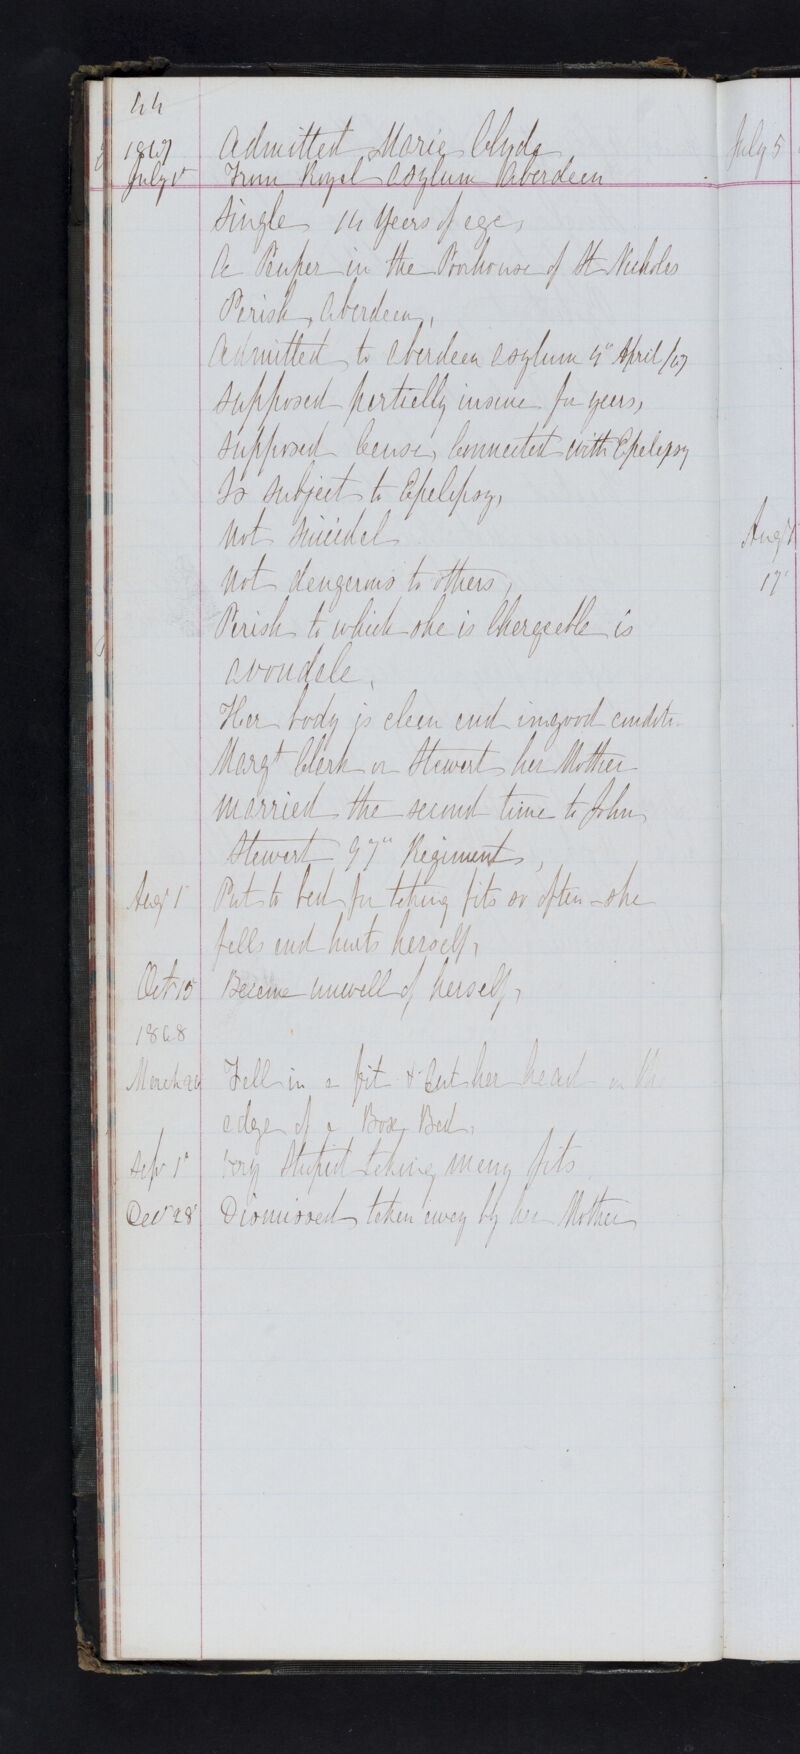 44
1867 Admitted Maria Clyde
July 1st From Royal Asylum Aberdeen
Single 14 Years of age,
A Pauper in the Poorhouse of St Nicholas
Parish, Aberdeen,
Admitted to Aberdeen Asylum 4" April /67
Supposed partially insane for years,
Supposed Cause, Connected with Epelepsy
Is Subject to Epelepsy,
Not Suicidal
Not dangerous to others,
Parish to which she is Chargeable is
Avondale,
Her body is clean and in good condit
Margt Clark or Stewart her Mother
married the second time to John
Stewart 97" Regiment,
Augt 1st Put to bed for taking fits so often - she
falls and hurts herself,
Oct 15 Became unwell of herself,
1868
March 24 Fell in a fit & Cut her head on the
edge of a Box Bed,
Sepr 1st Very Stupid taking many fits
Decr 28 Dismissed taken away by her Mother
July 5
Augt
17